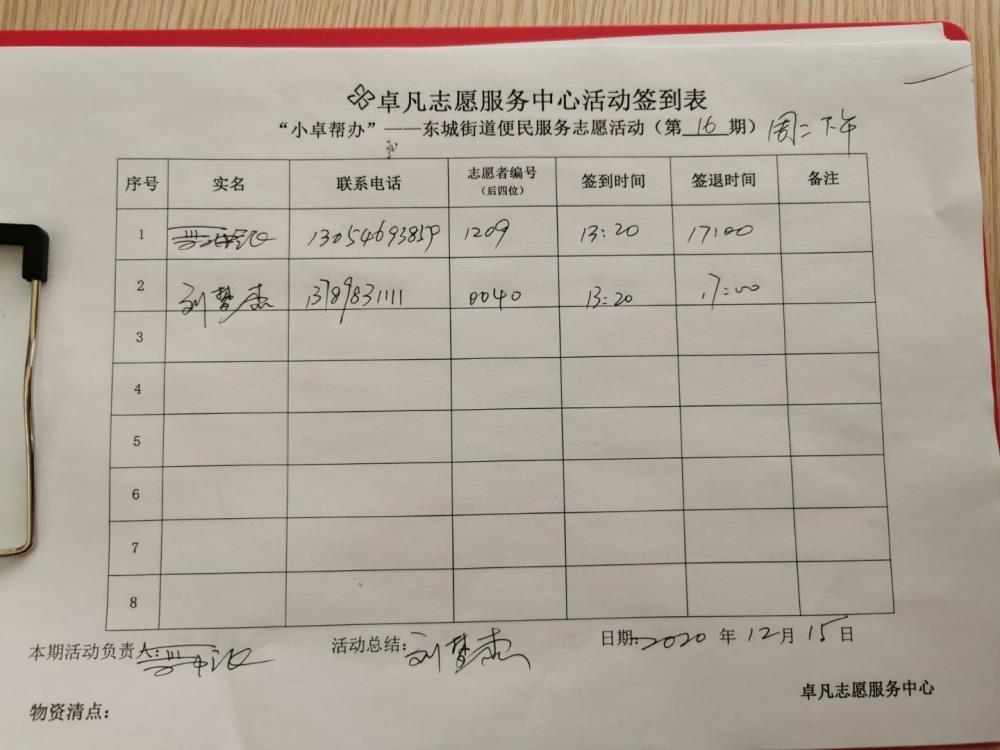 卓凡志愿服务中心活动签到表
“小卓帮办”——东城街道便民服务志愿活动（第 16 期）周二下午
序号 实名 联系电话 志愿者编号（后四位） 签到时间 签退时间 备注
1 13054693859 1209 13:20 17:00
2 刘梦杰 13789831111 0040 13:20 17:00
3
4
5
6
7
8
本期活动负责人： 活动总结：刘梦杰 日期：2020 年 12 月 15 日
卓凡志愿服务中心
物资清点：